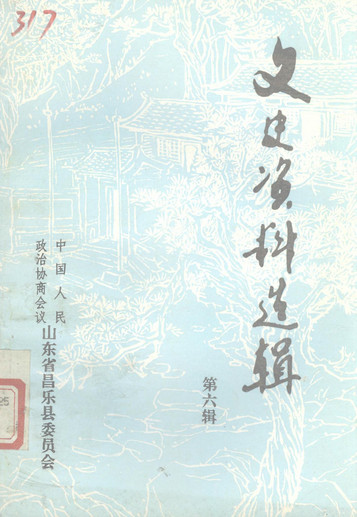 317
文史资料选辑
第六辑
中国人民
政治协商会议
山东省昌乐县委员会
25